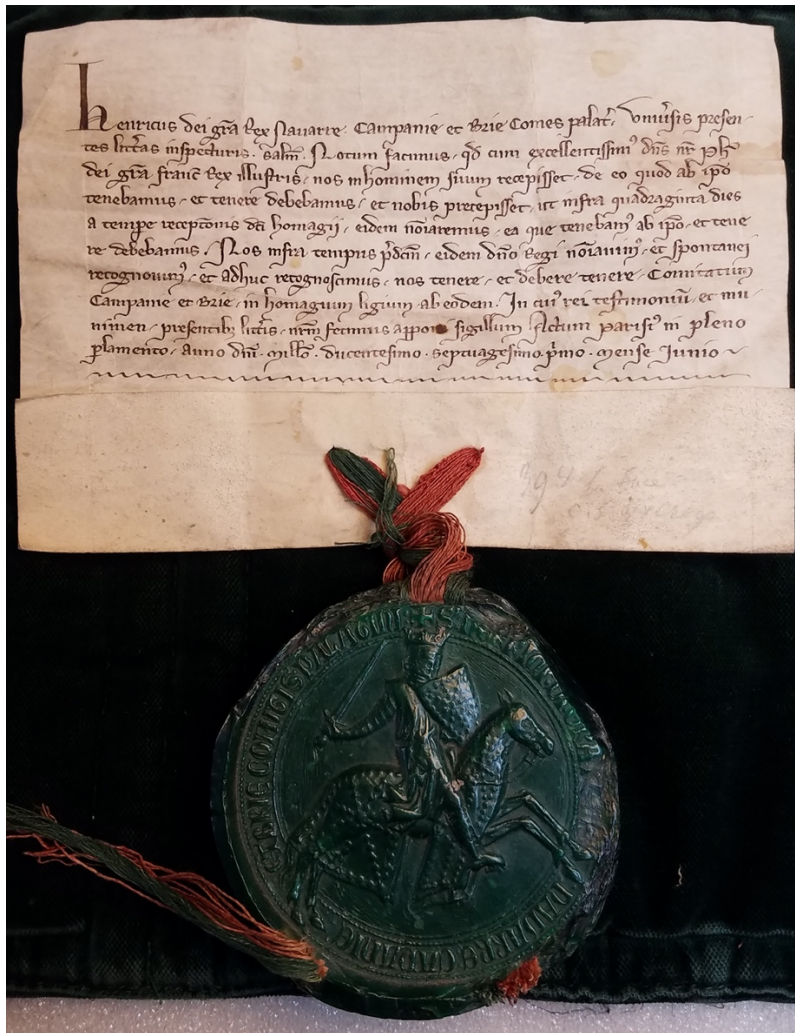 Henricus dei gr̃a Rex Nauarre. Campanie et Brie Comes palat̃. Vniu̾sis presen-
tes litt̾as inspecturis. salt̃m. Notum facimus. qd̾ cum excellentissim᷒ dn̄s nr̄ Ph̃
dei gr̃a franc̾ Rex illustris. nos in hominem suum recepisset. de eo quod ab ip̃o
tenebamus. et tenere debebamus. et nobis precepisset. ut infra quadraginta dies
a tempe receptōnis dc̄i homagii. eidem nōiaremus. ea que tenebam᷒ ab ip̃o. et tene
re debebamus. Nos infra tempus p̃dc̄m. eidem dn̄o Regi nōiauim᷒. et spontanei
recognouim᷒. et adhuc recognoscimus. nos tenere. et debere tenere. Comitatum
Campanie et Brie. in homagium ligium ab eodem. In cui᷒ rei testimoniū. et mu-
nimen. presentib; litt̾is. nr̄m fecimus apponi sigillum Actum parisi᷒ in pleno
plamento. anno dn̄i. mill̃o. ducentesimo. septuagesimo. p̾mo. mense Iunio
ET BRIE COMITIS PALATINI
NAVARRE CAMPANIE